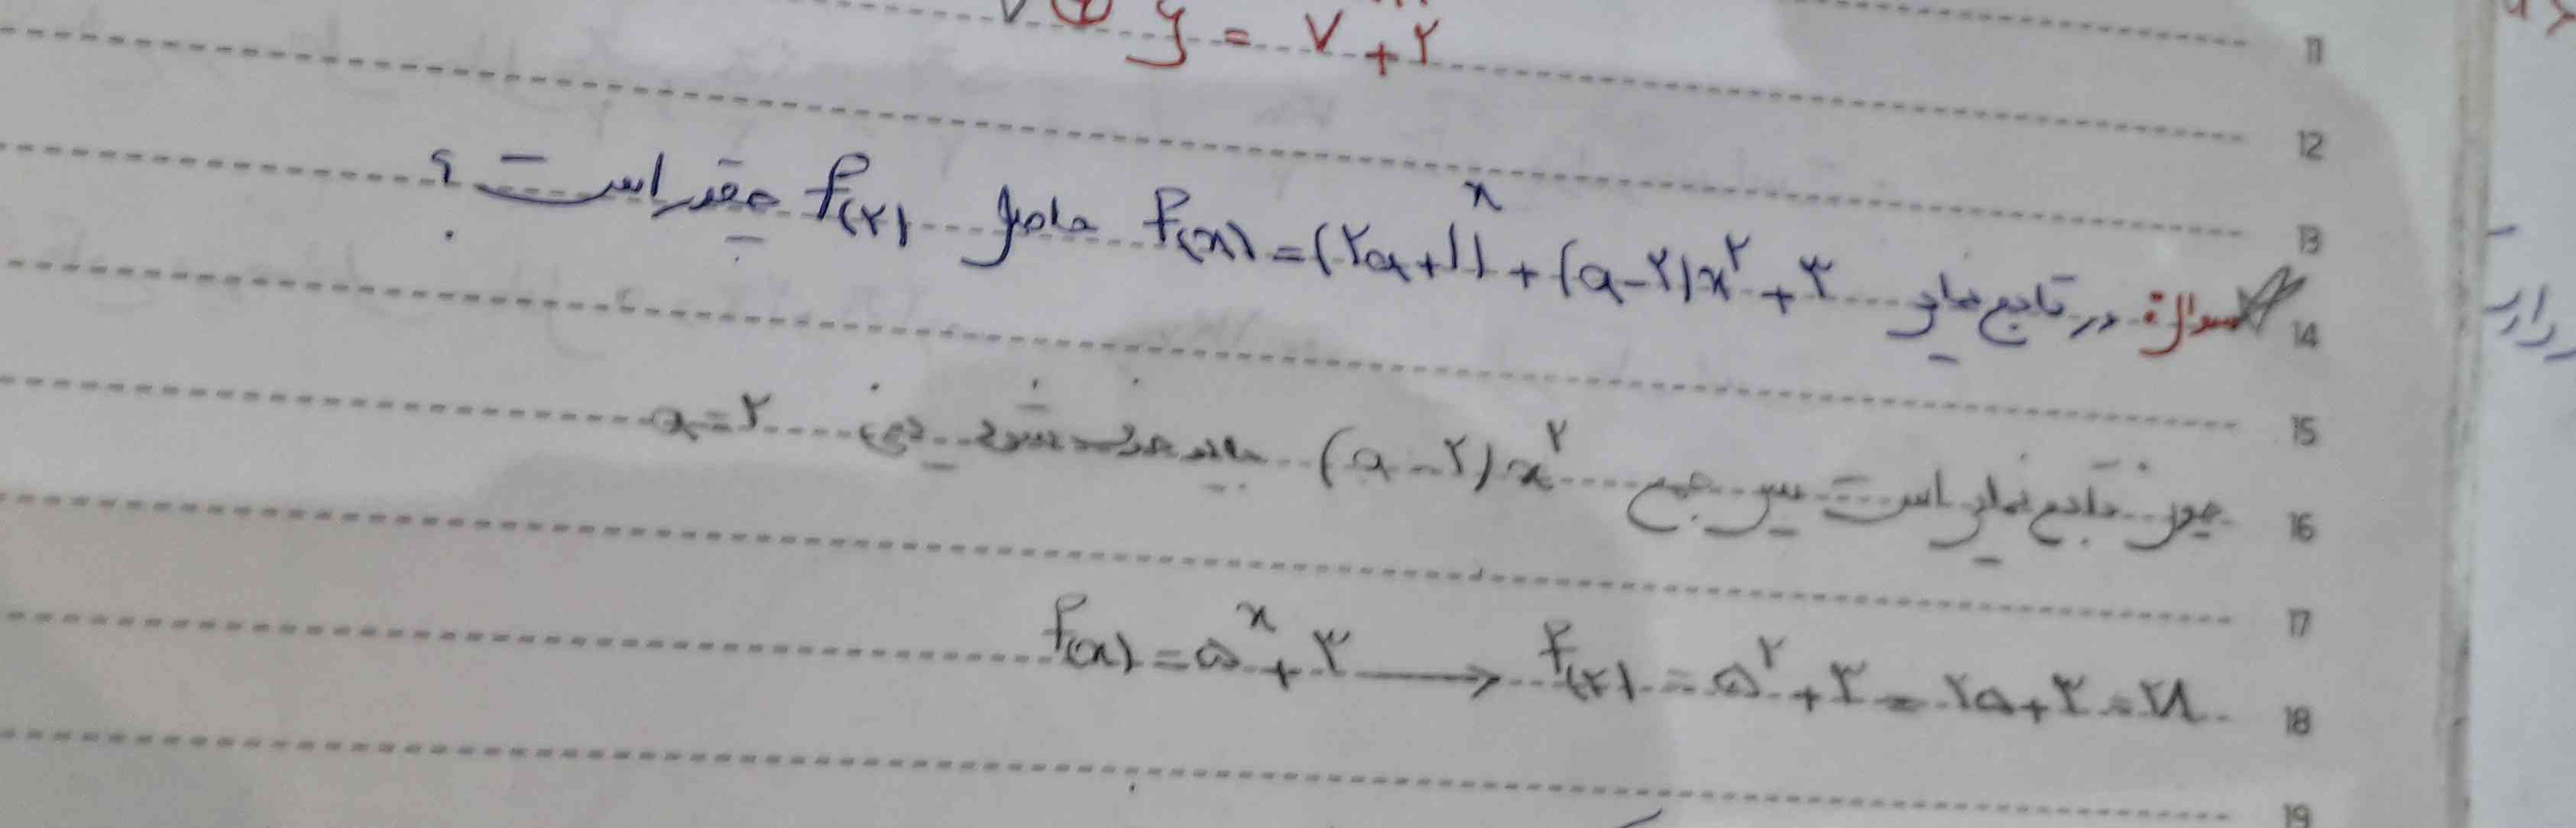 y = ۷ + ۲
11
12
13
سوال: در تابع نمایی f(x) = (۲a+۱)^x + (a-۲)x^۲ + ۳ حاصل f(۲) چقدر است؟
14
15
چون تابع نمایی است پس جمع (a-۲)x^۲ باید حذف شود یعنی a=۲
16
17
f(x) = ۵^x + ۳ → f(۲) = ۵^۲ + ۳ = ۲۵ + ۳ = ۲۸
18
19